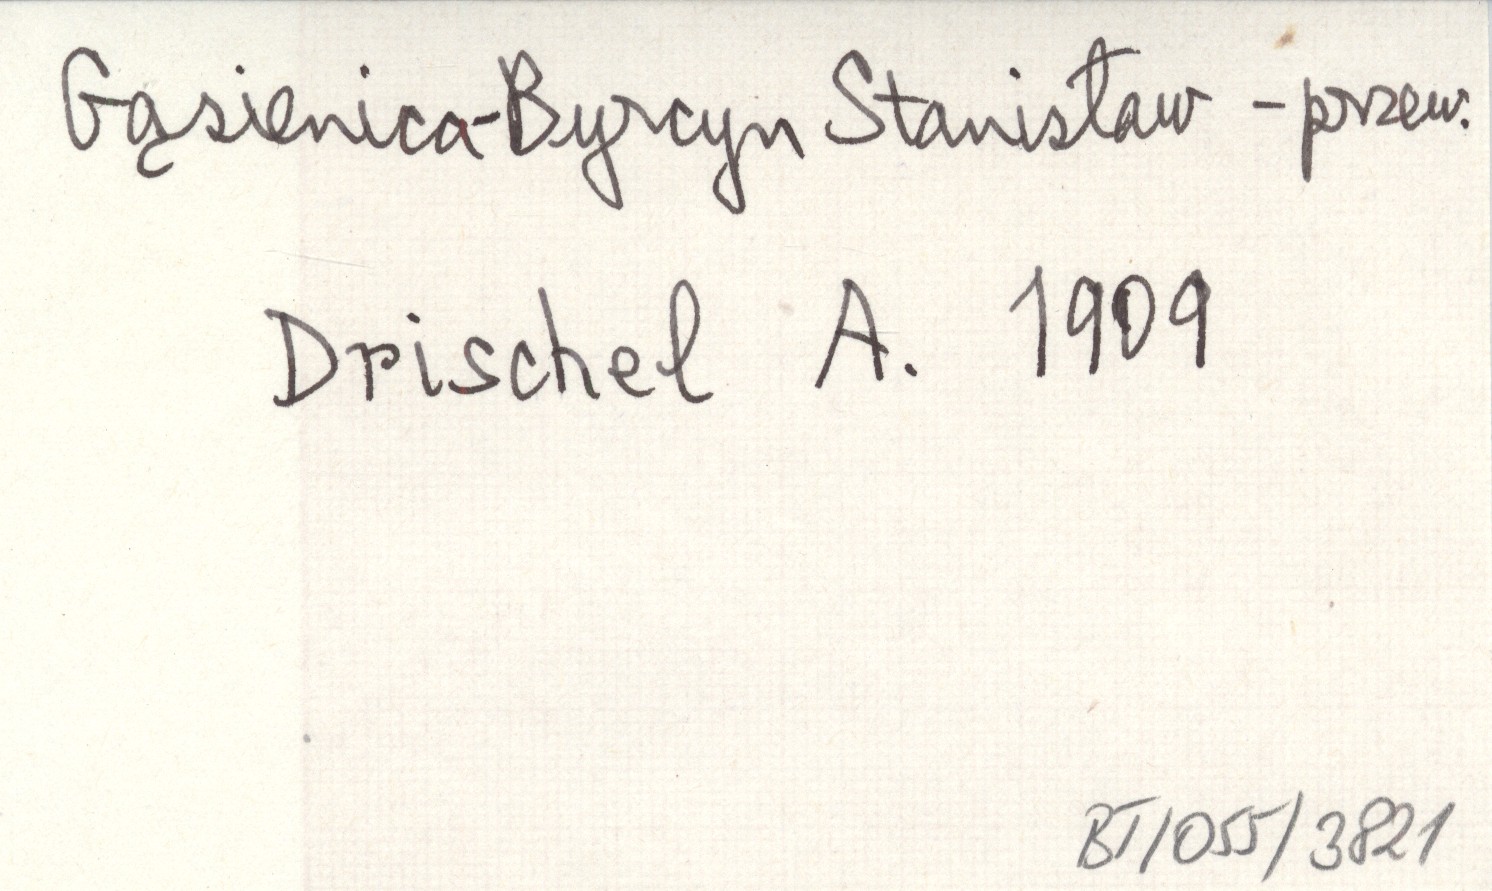 Gąsienica-Byrcyn Stanisław - przew.
Drischel A. 1909
BT/055/3821